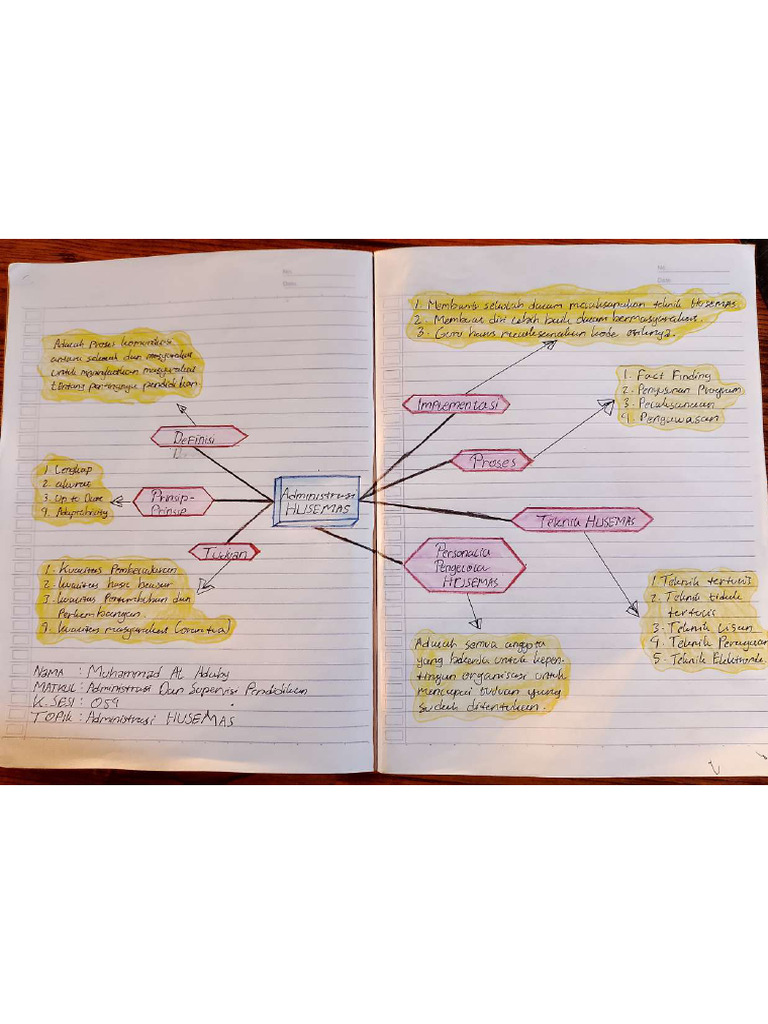 No.
Date.
Adalah Proses komunikasi
antara sekolah dan masyarakat
untuk meningkatkan masyarakat
tentang pentingnya pendidikan.
Definisi
1. Lengkap
2. akurat
3. Up to Date
4.
Prinsip-
Prinsip
Tujuan
1. Kualitas Pembelajaran
2. kualitas hasil belajar
3. kualitas Pertumbuhan dan
Perkembangan.
4. kualitas masyarakat (orantua)
Administrasi
HUSEMAS
NAMA : Muhammad Al
MATKUL : Administrasi Dan Supervisi Pendidikan
K. SESI : 059
TOPIK : Administrasi HUSEMAS
No.
Date.
1. Membantu sekolah dalam melaksanakan teknik HUSEMAS.
2. Membuat diri lebih baik dalam bermasyarakat.
3. Guru harus melaksanakan kode etiknya.
Implementasi
1. Fact Finding
2. Penyusunan Program
3. Pelaksanaan
4. Pengawasan
Proses
Teknik HUSEMAS
Personalia
Pengelola
HUSEMAS
1. Teknik tertulis
2. Teknik tidak
tertulis
3. Teknik Lisan
4. Teknik Peragaan
5. Teknik Elektronik.
Adalah semua anggota
yang bekerja untuk kepen-
tingan organisasi untuk
mencapai tujuan yang
sudah ditentukan.